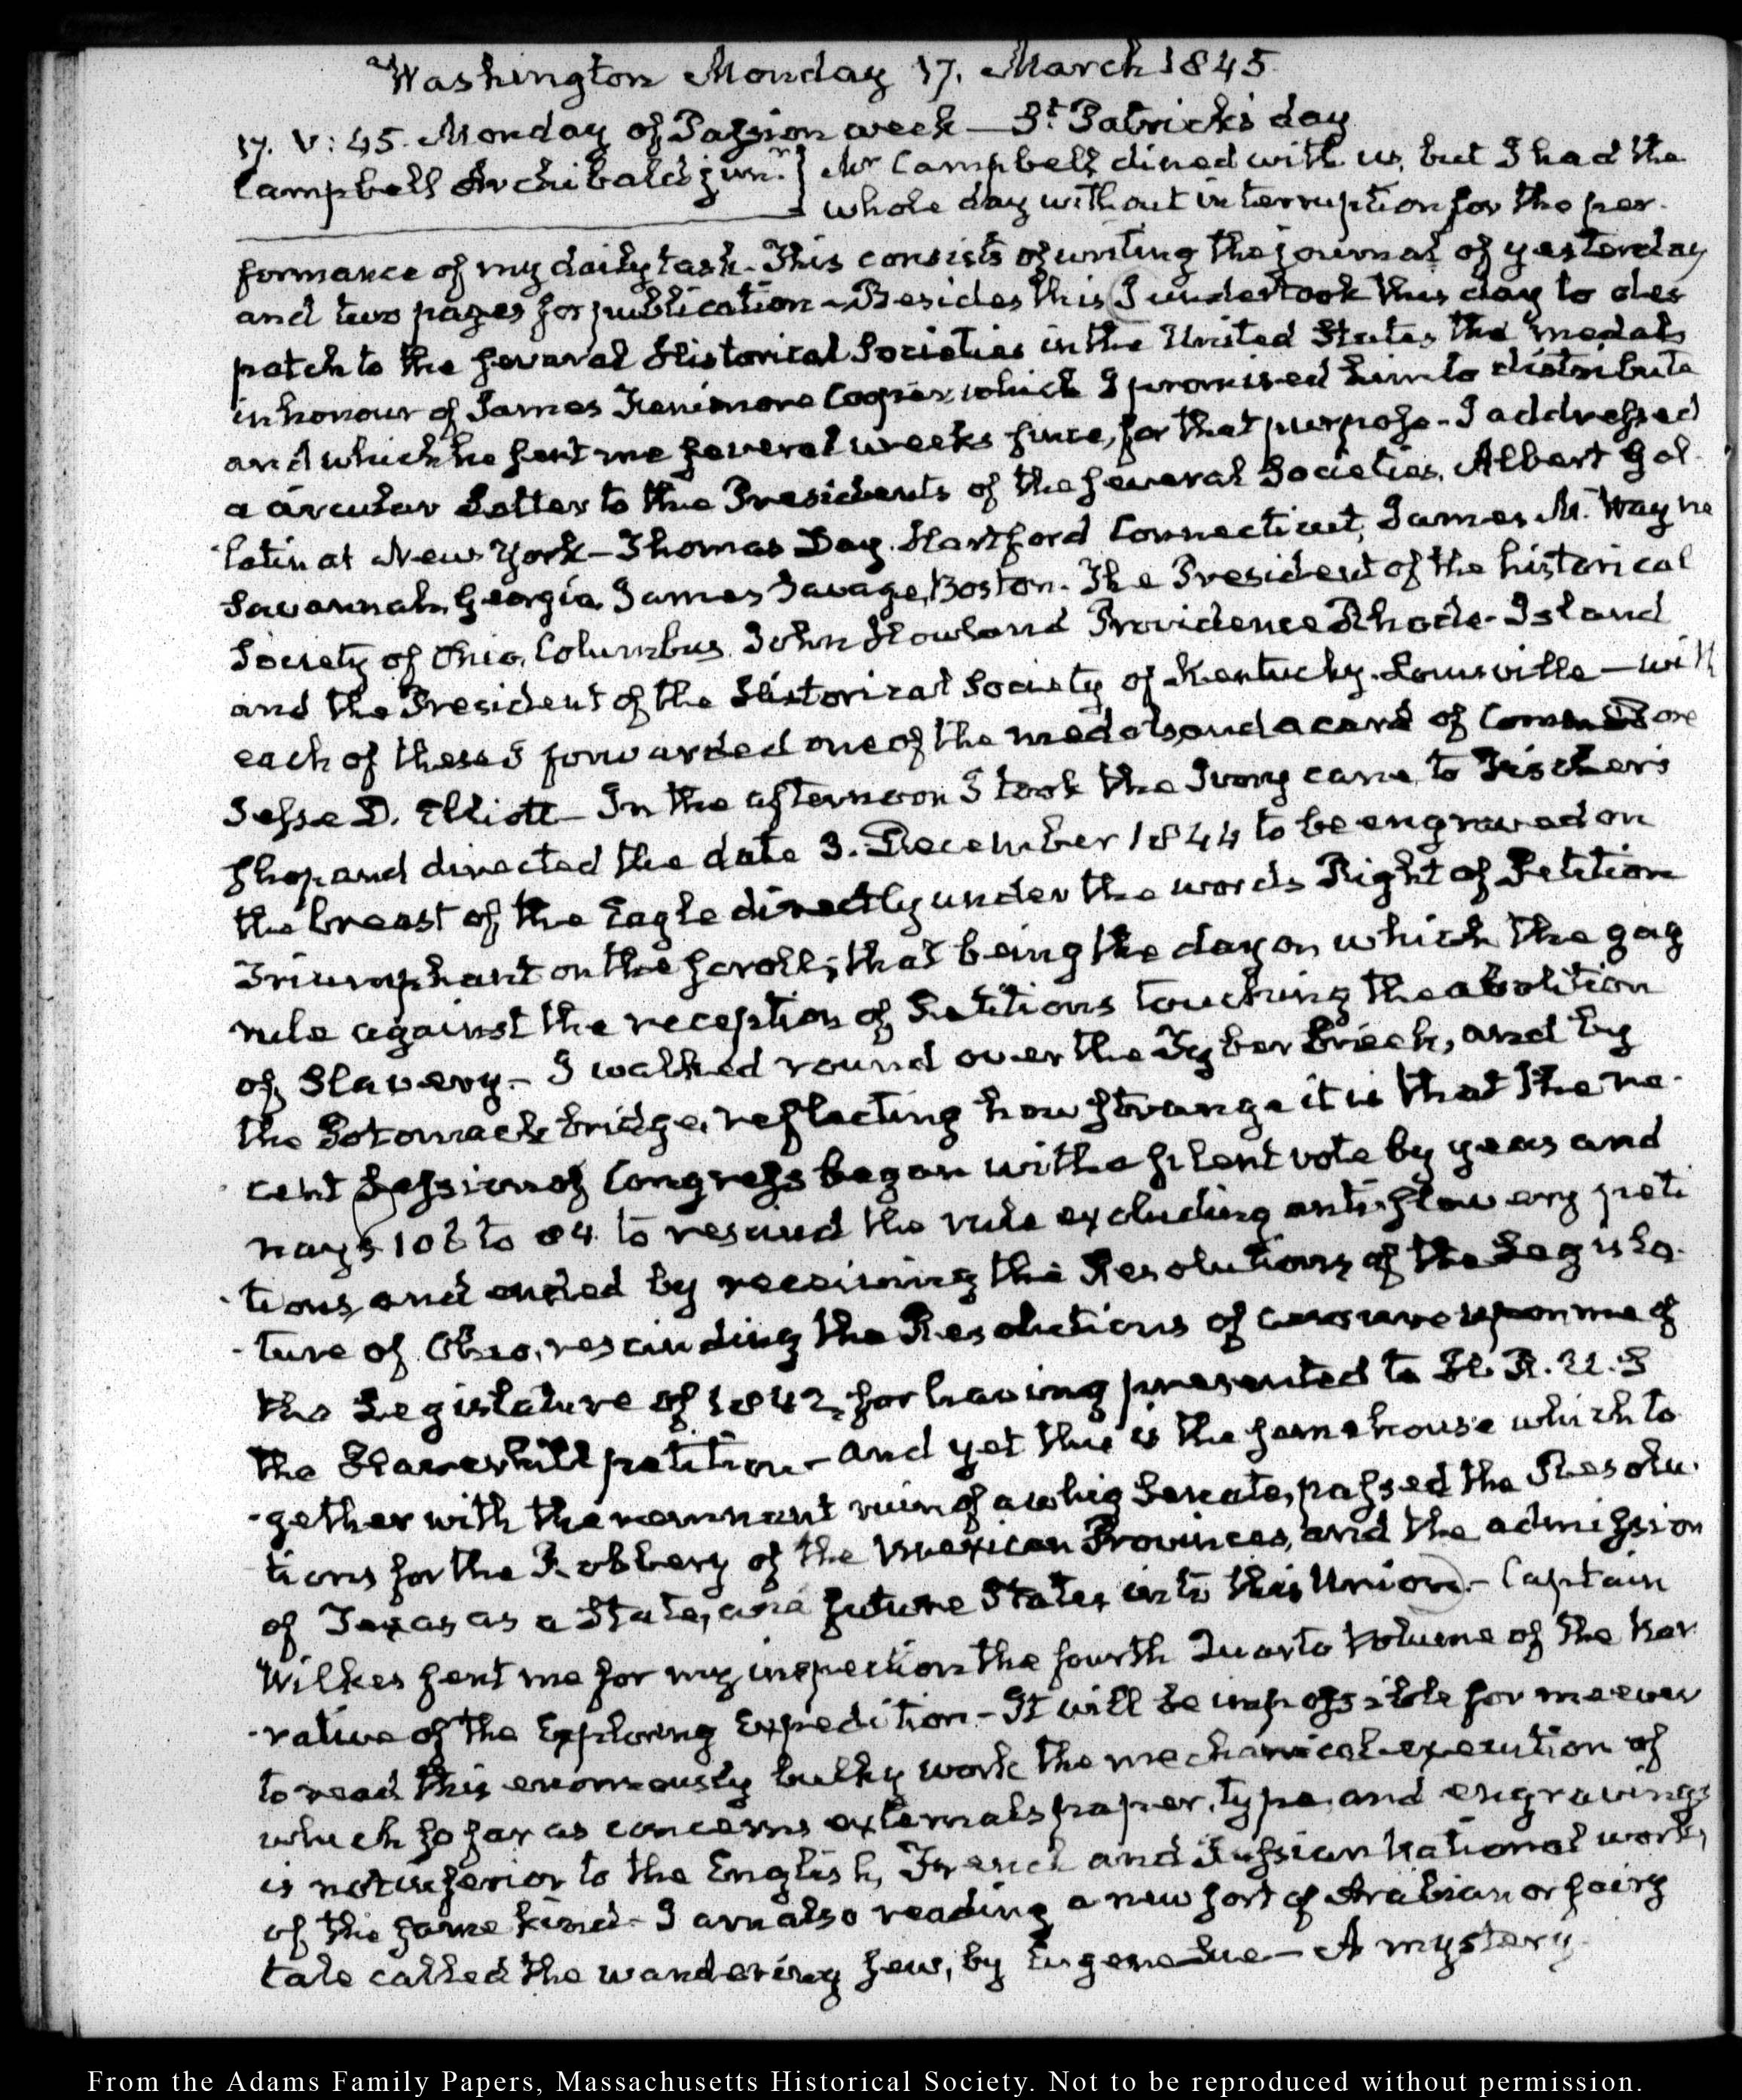 Washington Monday 17. March 1845.
17. V: 45. Monday of Passion week — St Patrick's day
Campbell Archibald junr. } Mr Campbell dined with us, but I had the
whole day without interruption for the per-
formance of my daily task. This consists of writing the journal of yesterday
and two pages for publication – Besides this I undertook this day to des
patch to the several Historical Societies in the United States the medals
in honour of James Fenimore Cooper which I promised him to distribute
and which he sent me several weeks since, for that purpose – I addressed
a circular Letter to the Presidents of the several Societies, Albert Gal-
latin at New York – Thomas Day. Hartford Connecticut, James M. Wayne
Savannah, Georgia, James Savage, Boston. The President of the historical
Society of Ohio, Columbus. John Howland Providence Rhode-Island
and the President of the Historical Society of Kentucky. Louisville – with
each of these I forwarded one of the medals and a card of Commodore
Jesse D. Elliott – In the afternoon I took the Ivory cane to Fischer's
shop, and directed the date 3. December 1844 to be engraved on
the breast of the Eagle directly under the words Right of Petition
Triumphant on the scroll; that being the day on which the gag
rule against the reception of Petitions touching the abolition
of Slavery. – I walked round over the Tyber Creek, and by
the Potomack bridge, reflecting how strange it is that the re-
cent Session of Congress began with a silent vote by yeas and
nays 108 to 84 to rescind the rule excluding anti-slavery peti
tions and ended by receiving the Resolutions of the Legisla-
ture of Ohio, rescinding the Resolutions of censure upon me of
the Legislature of 1842, for having presented to H. R. U. S
the Haverhill petition – and yet this is the same house which to
-gether with the remnant ruin of a whig Senate, passed the Resolu-
tions for the Robbery of the Mexican Provinces, and the admission
of Texas as a State, and future States into this Union. – Captain
Wilkes sent me for my inspection the fourth Quarto volume of the Nar
-rative of the Exploring Expedition – It will be impossible for me ever
to read this enormously bulky work the mechanical execution of
which so far as concerns externals paper, type, and engravings
is not inferior to the English, French and Russian National works,
of the same kind – I am also reading a new sort of Arabian or fairy
tale called the wandering Jew, by Eugene Sue – A mystery.
From the Adams Family Papers, Massachusetts Historical Society. Not to be reproduced without permission.